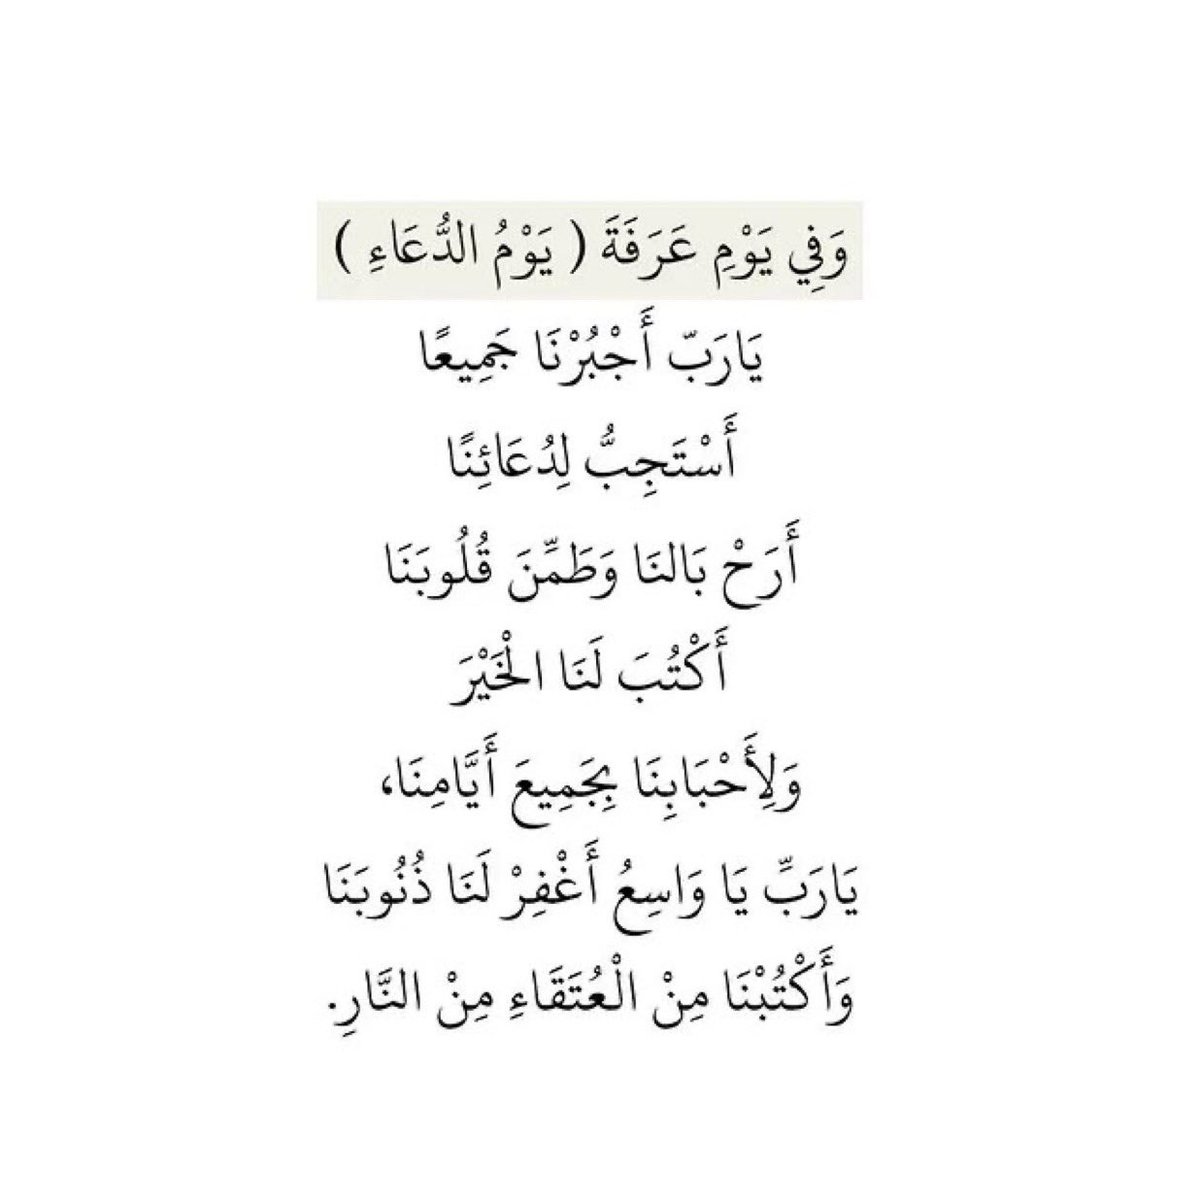 وَفِي يَوْمِ عَرَفَةَ ( يَوْمُ الدُّعَاءِ )
يَارَبّ أَجْبُرْنَا جَمِيعًا
أَسْتَجِبُّ لِدُعَائِنًا
أَرَحْ بَالنَا وَطَمِّنَ قُلُوبَنَا
أَكْتُبَ لَنَا الْخَيْرَ
وَلِأَحْبَابِنَا بِجَمِيعَ أَيَّامِنَا،
يَارَبِّ يَا وَاسِعُ أَغْفِرْ لَنَا ذُنُوبَنَا
وَأَكْتُبْنَا مِنْ الْعُتَقَاءِ مِنْ النَّارِ.